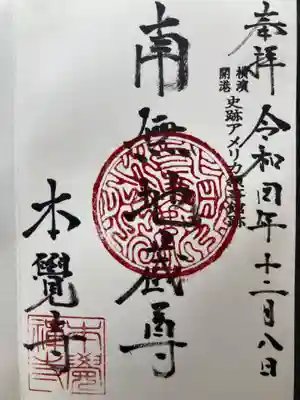 奉拝 令和四年十二月八日
横濱
開港
史跡アメリカ領事館跡
南無地蔵尊
本覺寺
本覺
禅寺